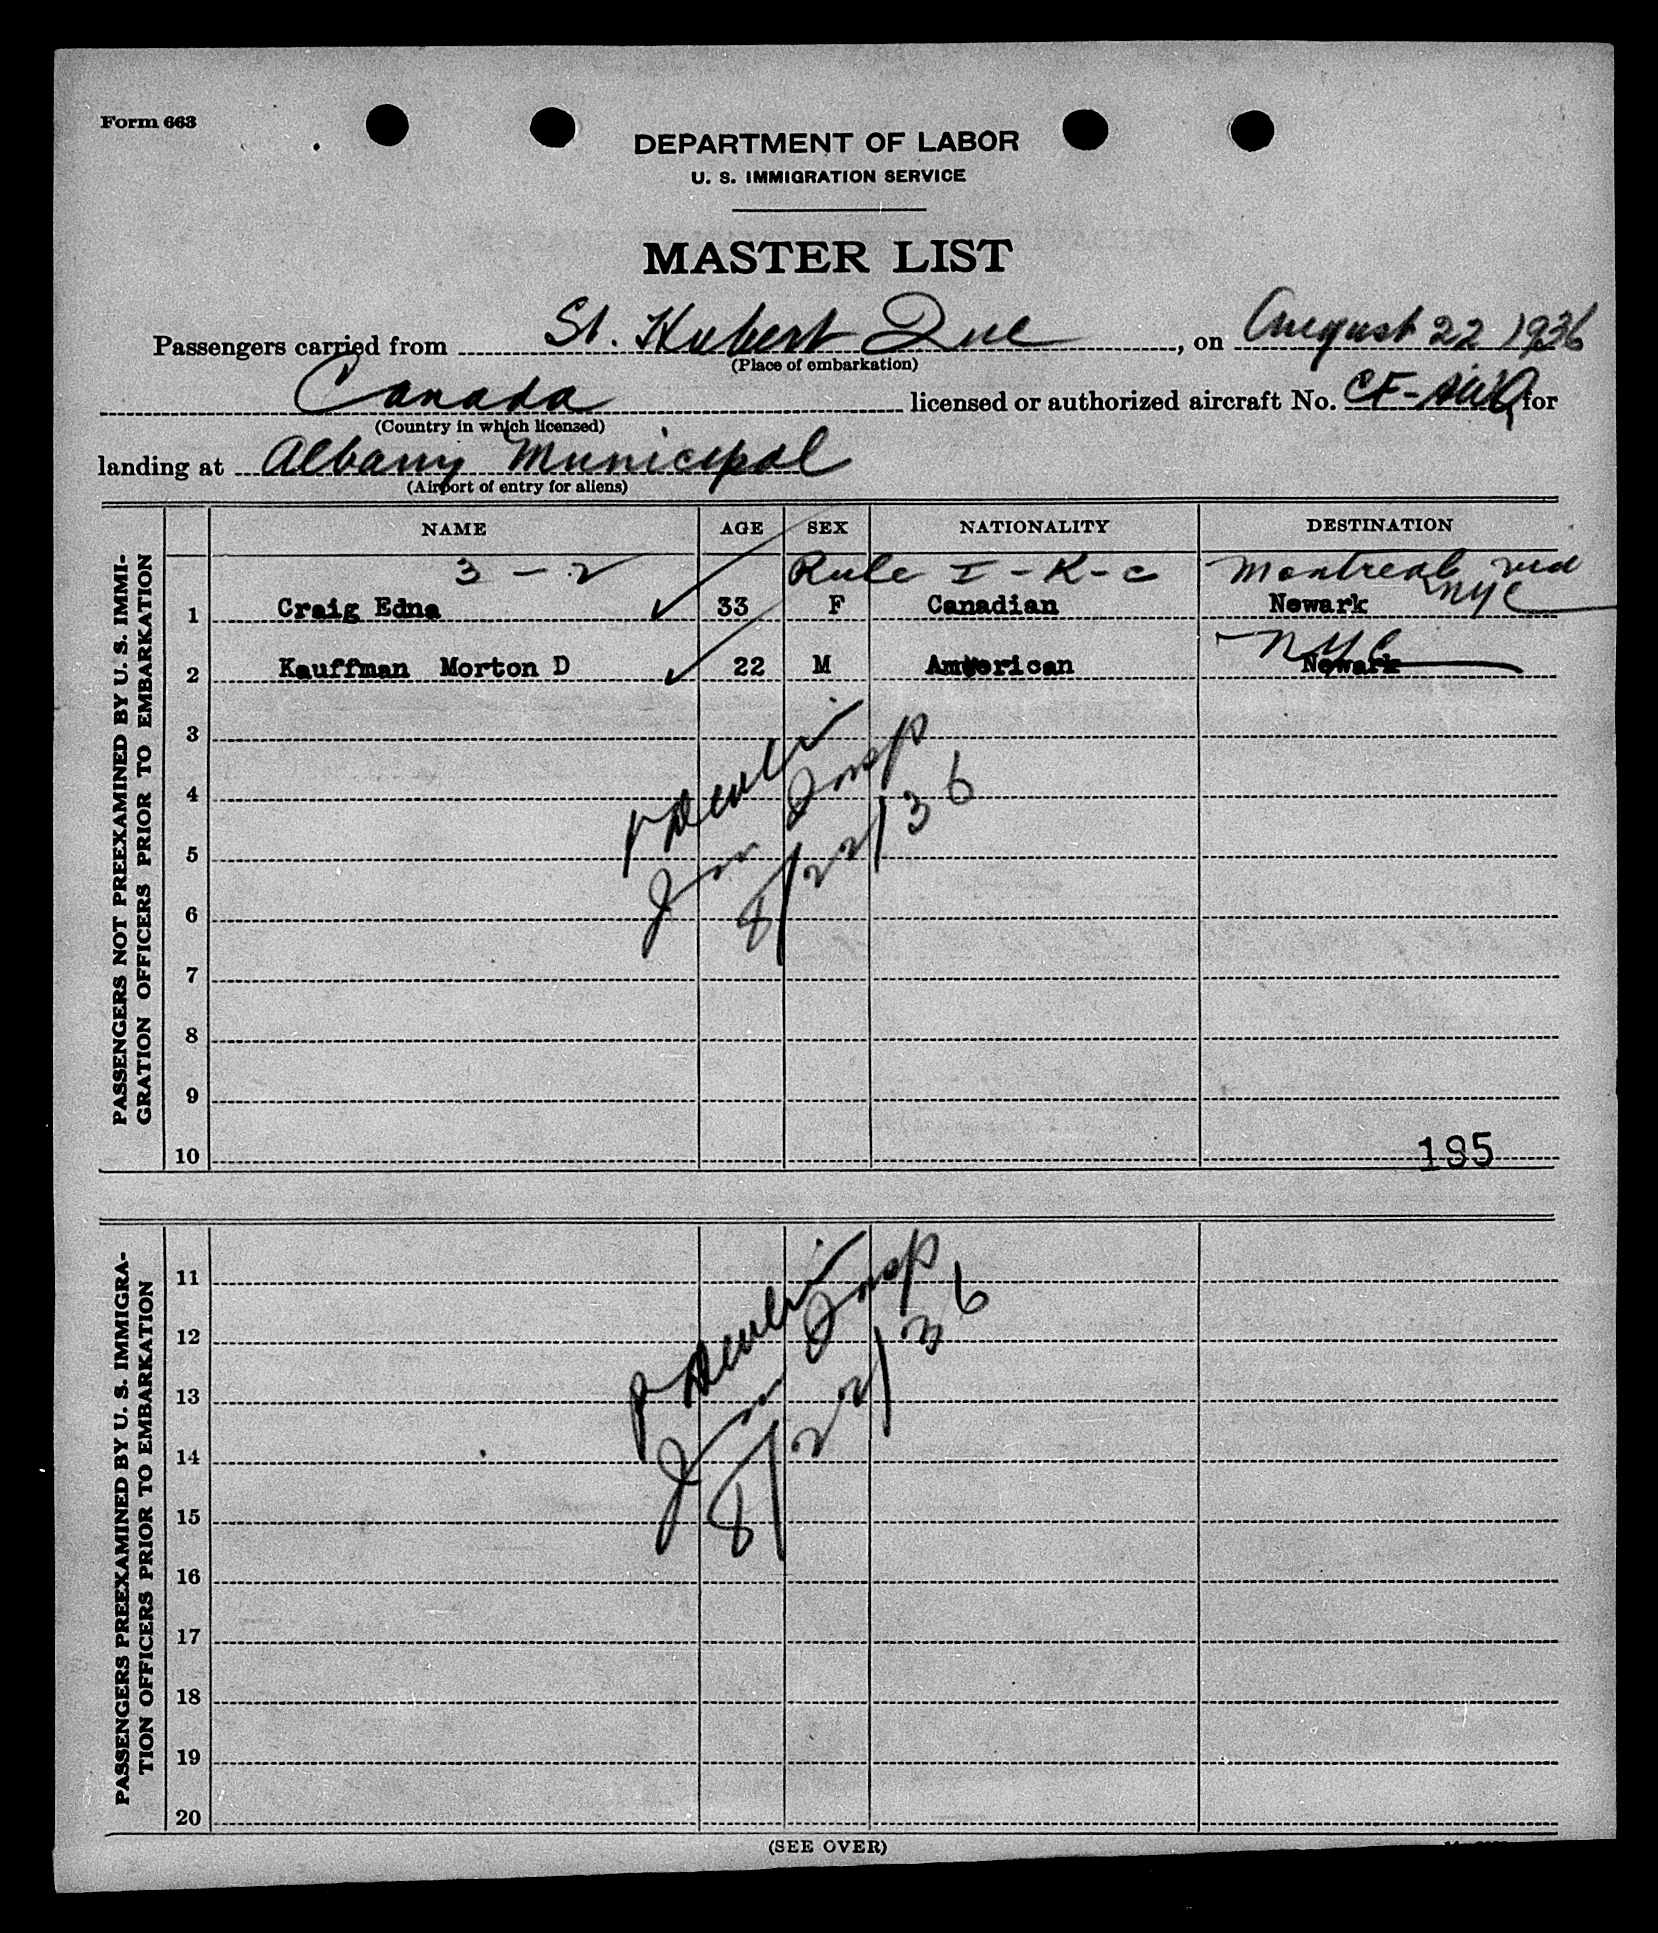 Form 663
DEPARTMENT OF LABOR
U. S. IMMIGRATION SERVICE
MASTER LIST
Passengers carried from St. Hubert Que, on August 22 1936
(Place of embarkation)
Canada licensed or authorized aircraft No. CF- for
(Country in which licensed)
landing at Albany Municipal
(Airport of entry for aliens)
NAME AGE SEX NATIONALITY DESTINATION
3 - 2 Rule I - K - c Montreal via
NYC
1 Craig Edna 33 F Canadian Newark
NYC
2 Kauffman Morton D 22 M American Newark
3
4
5
6
7
8
9
10
PASSENGERS NOT PREEXAMINED BY U. S. IMMI-
GRATION OFFICERS PRIOR TO EMBARKATION
Imm Insp
8/22/36
195
11
12
13
14
15
16
17
18
19
20
PASSENGERS PREEXAMINED BY U. S. IMMIGRA-
TION OFFICERS PRIOR TO EMBARKATION
Imm Insp
8/22/36
(SEE OVER)